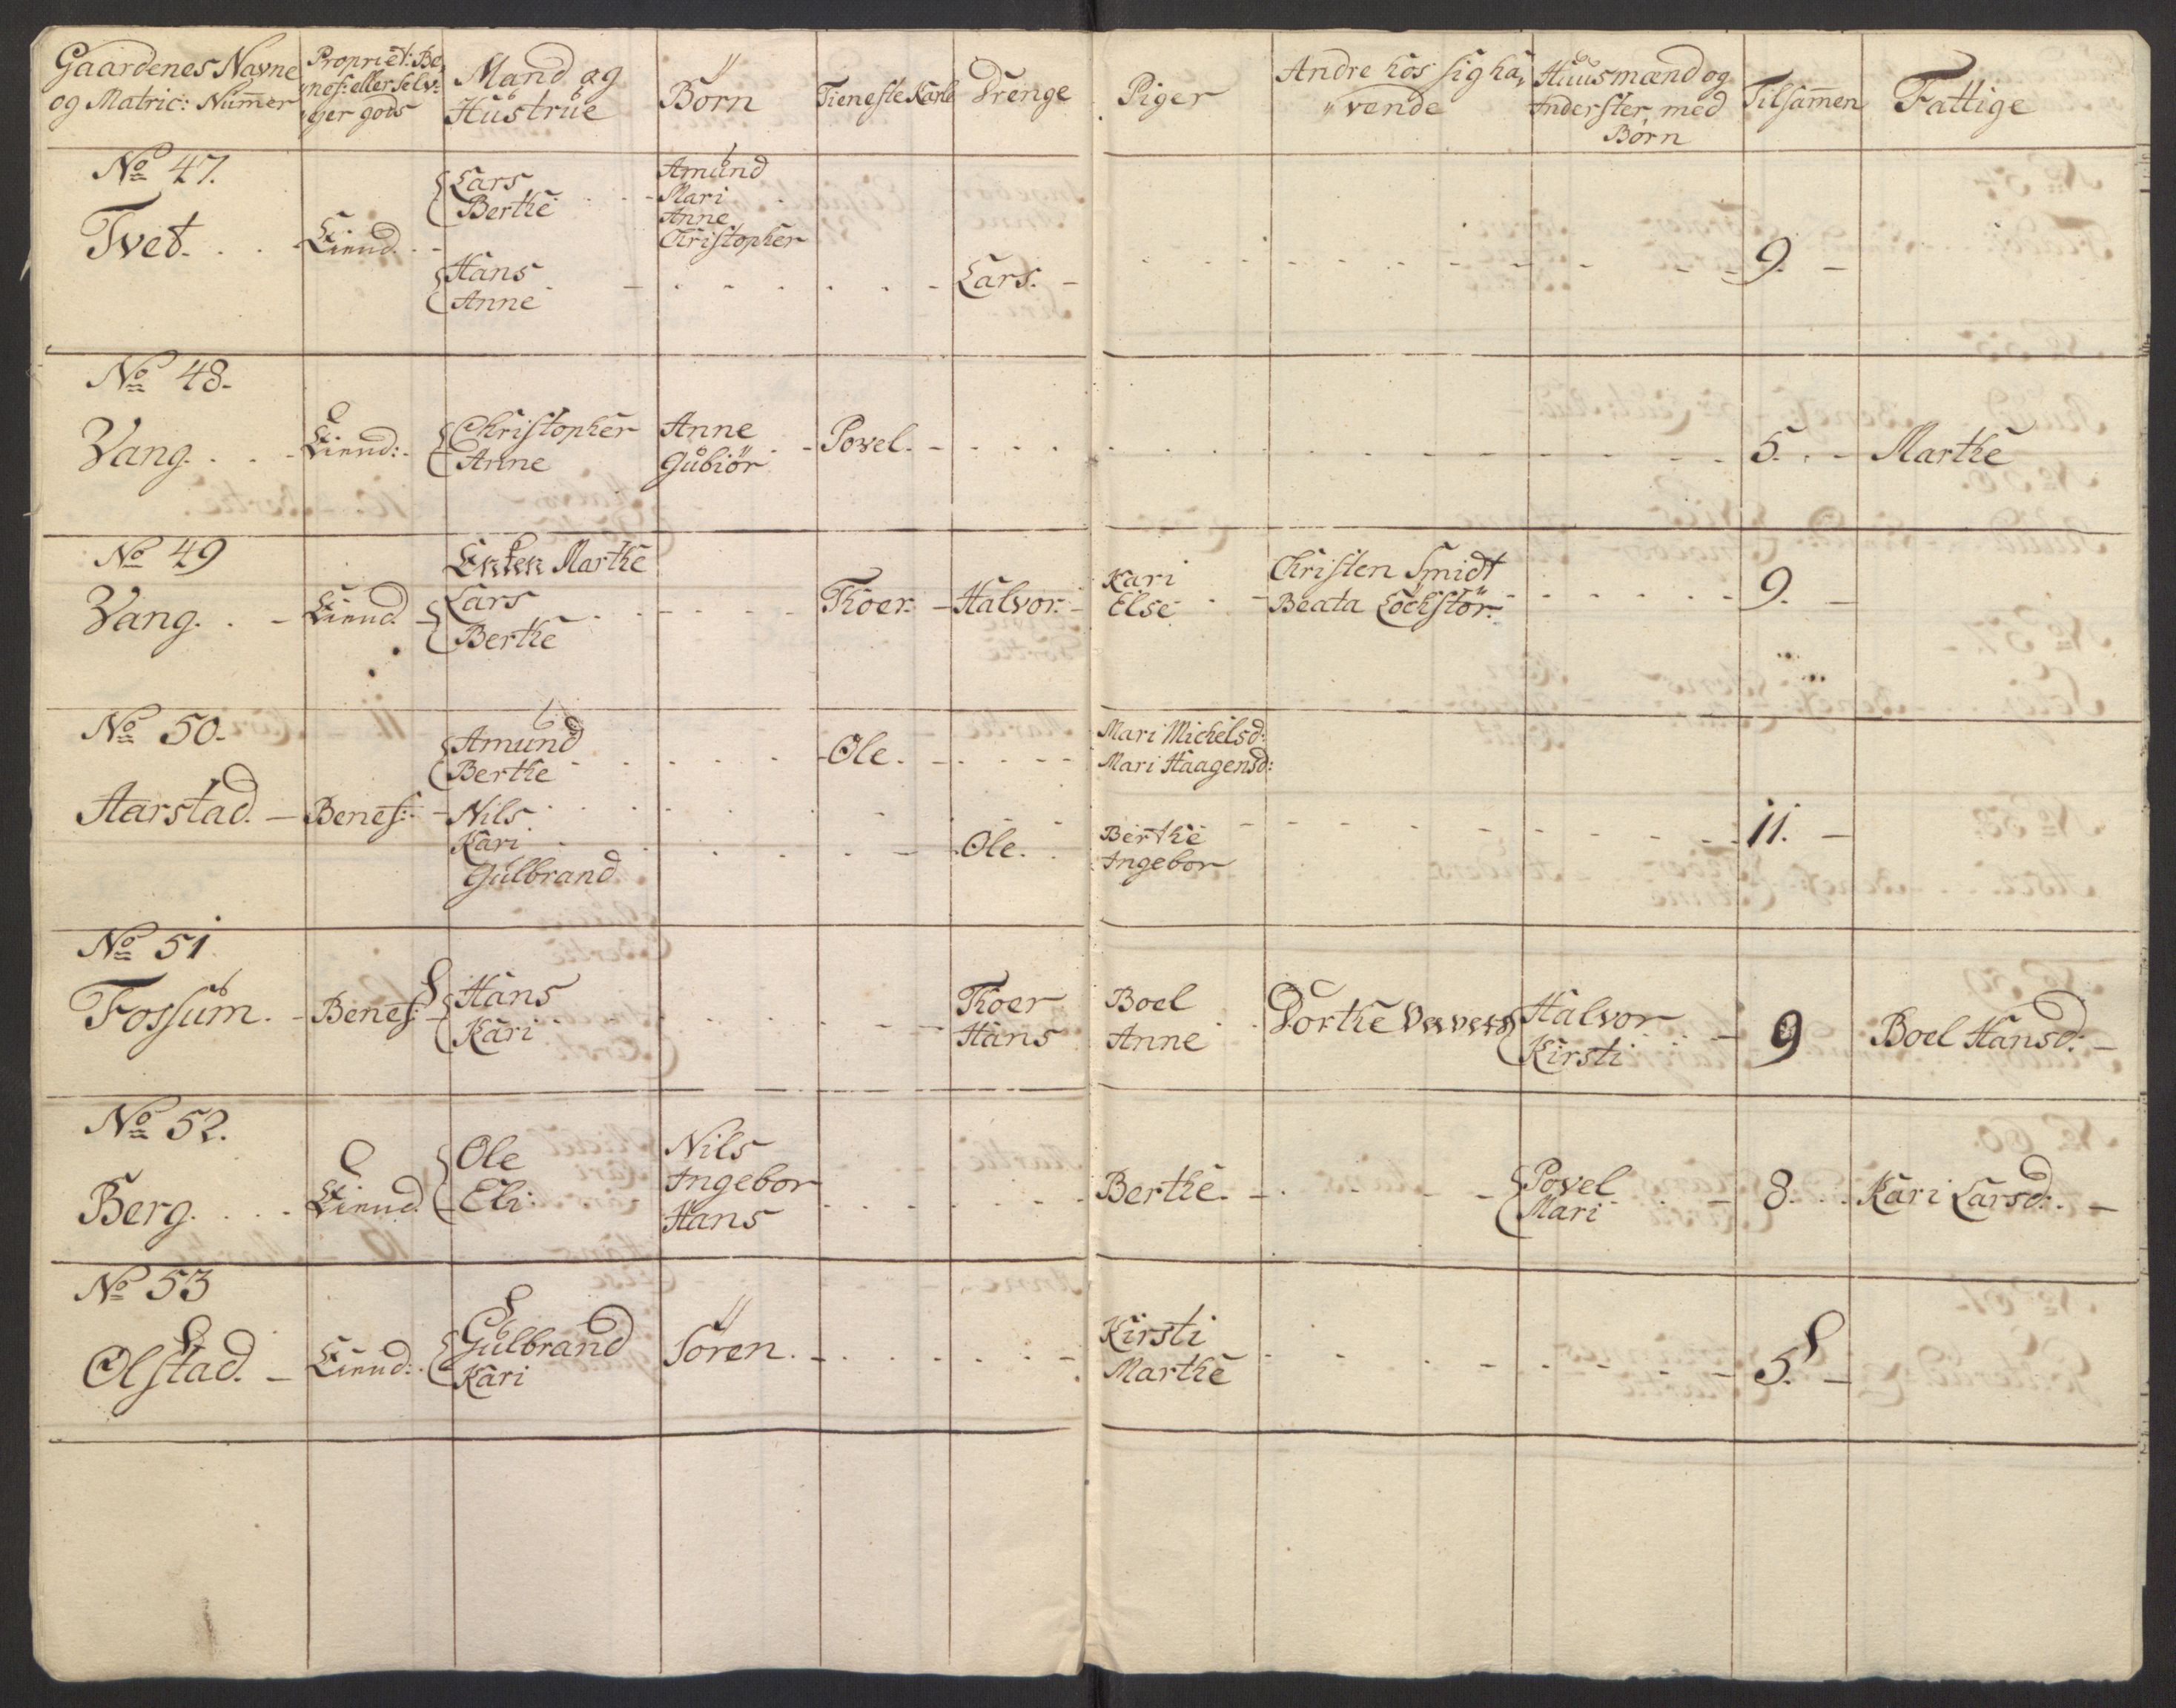 Gaardenes Navne og Matric: Numer | Propriet: Be nef: eller Selv: ejer gods | Mand og Hustrue | Börn | Tieneste Karle | Drenge | Piger | Andre hos sig ha, vende | Huusmænd og Inderster med Börn | Tilsamen | Fattige
No 47.
Tvet. | Lars Berthe | Amund Mari Anne Christopher
Hans Anne | Lars. | 9.
No 48.
Vang. | Christopher Anne | Anne Gubiör | Povel. | 5. | Marthe
No 49
Vang. | Enken Marthe
Lars Berthe | Thoer. | Halvor. | Kari Else | Christen Smidt Beata Löchstör. | 9.
No 50.
Aarstad. | Benef: | Amund Berthe | Ole. | Mari Michelsd: Mari Haagensd:
Nils Kari Gulbrand | Ole. | Berthe Ingebor | 11.
No 51.
Fossum. | Benef: | Hans Kari | Thoer Hans | Boel Anne | Dorthe | Halvor Kirsti | 9 | Boel Hansd:
No 52.
Berg. | Ole Eli | Nils Ingebor Hans | Berthe. | Povel Mari | 8. | Kari Larsd:
No 53
Olstad. | Gulbrand Kari | Sören. | Kirsti Marthe | 5.